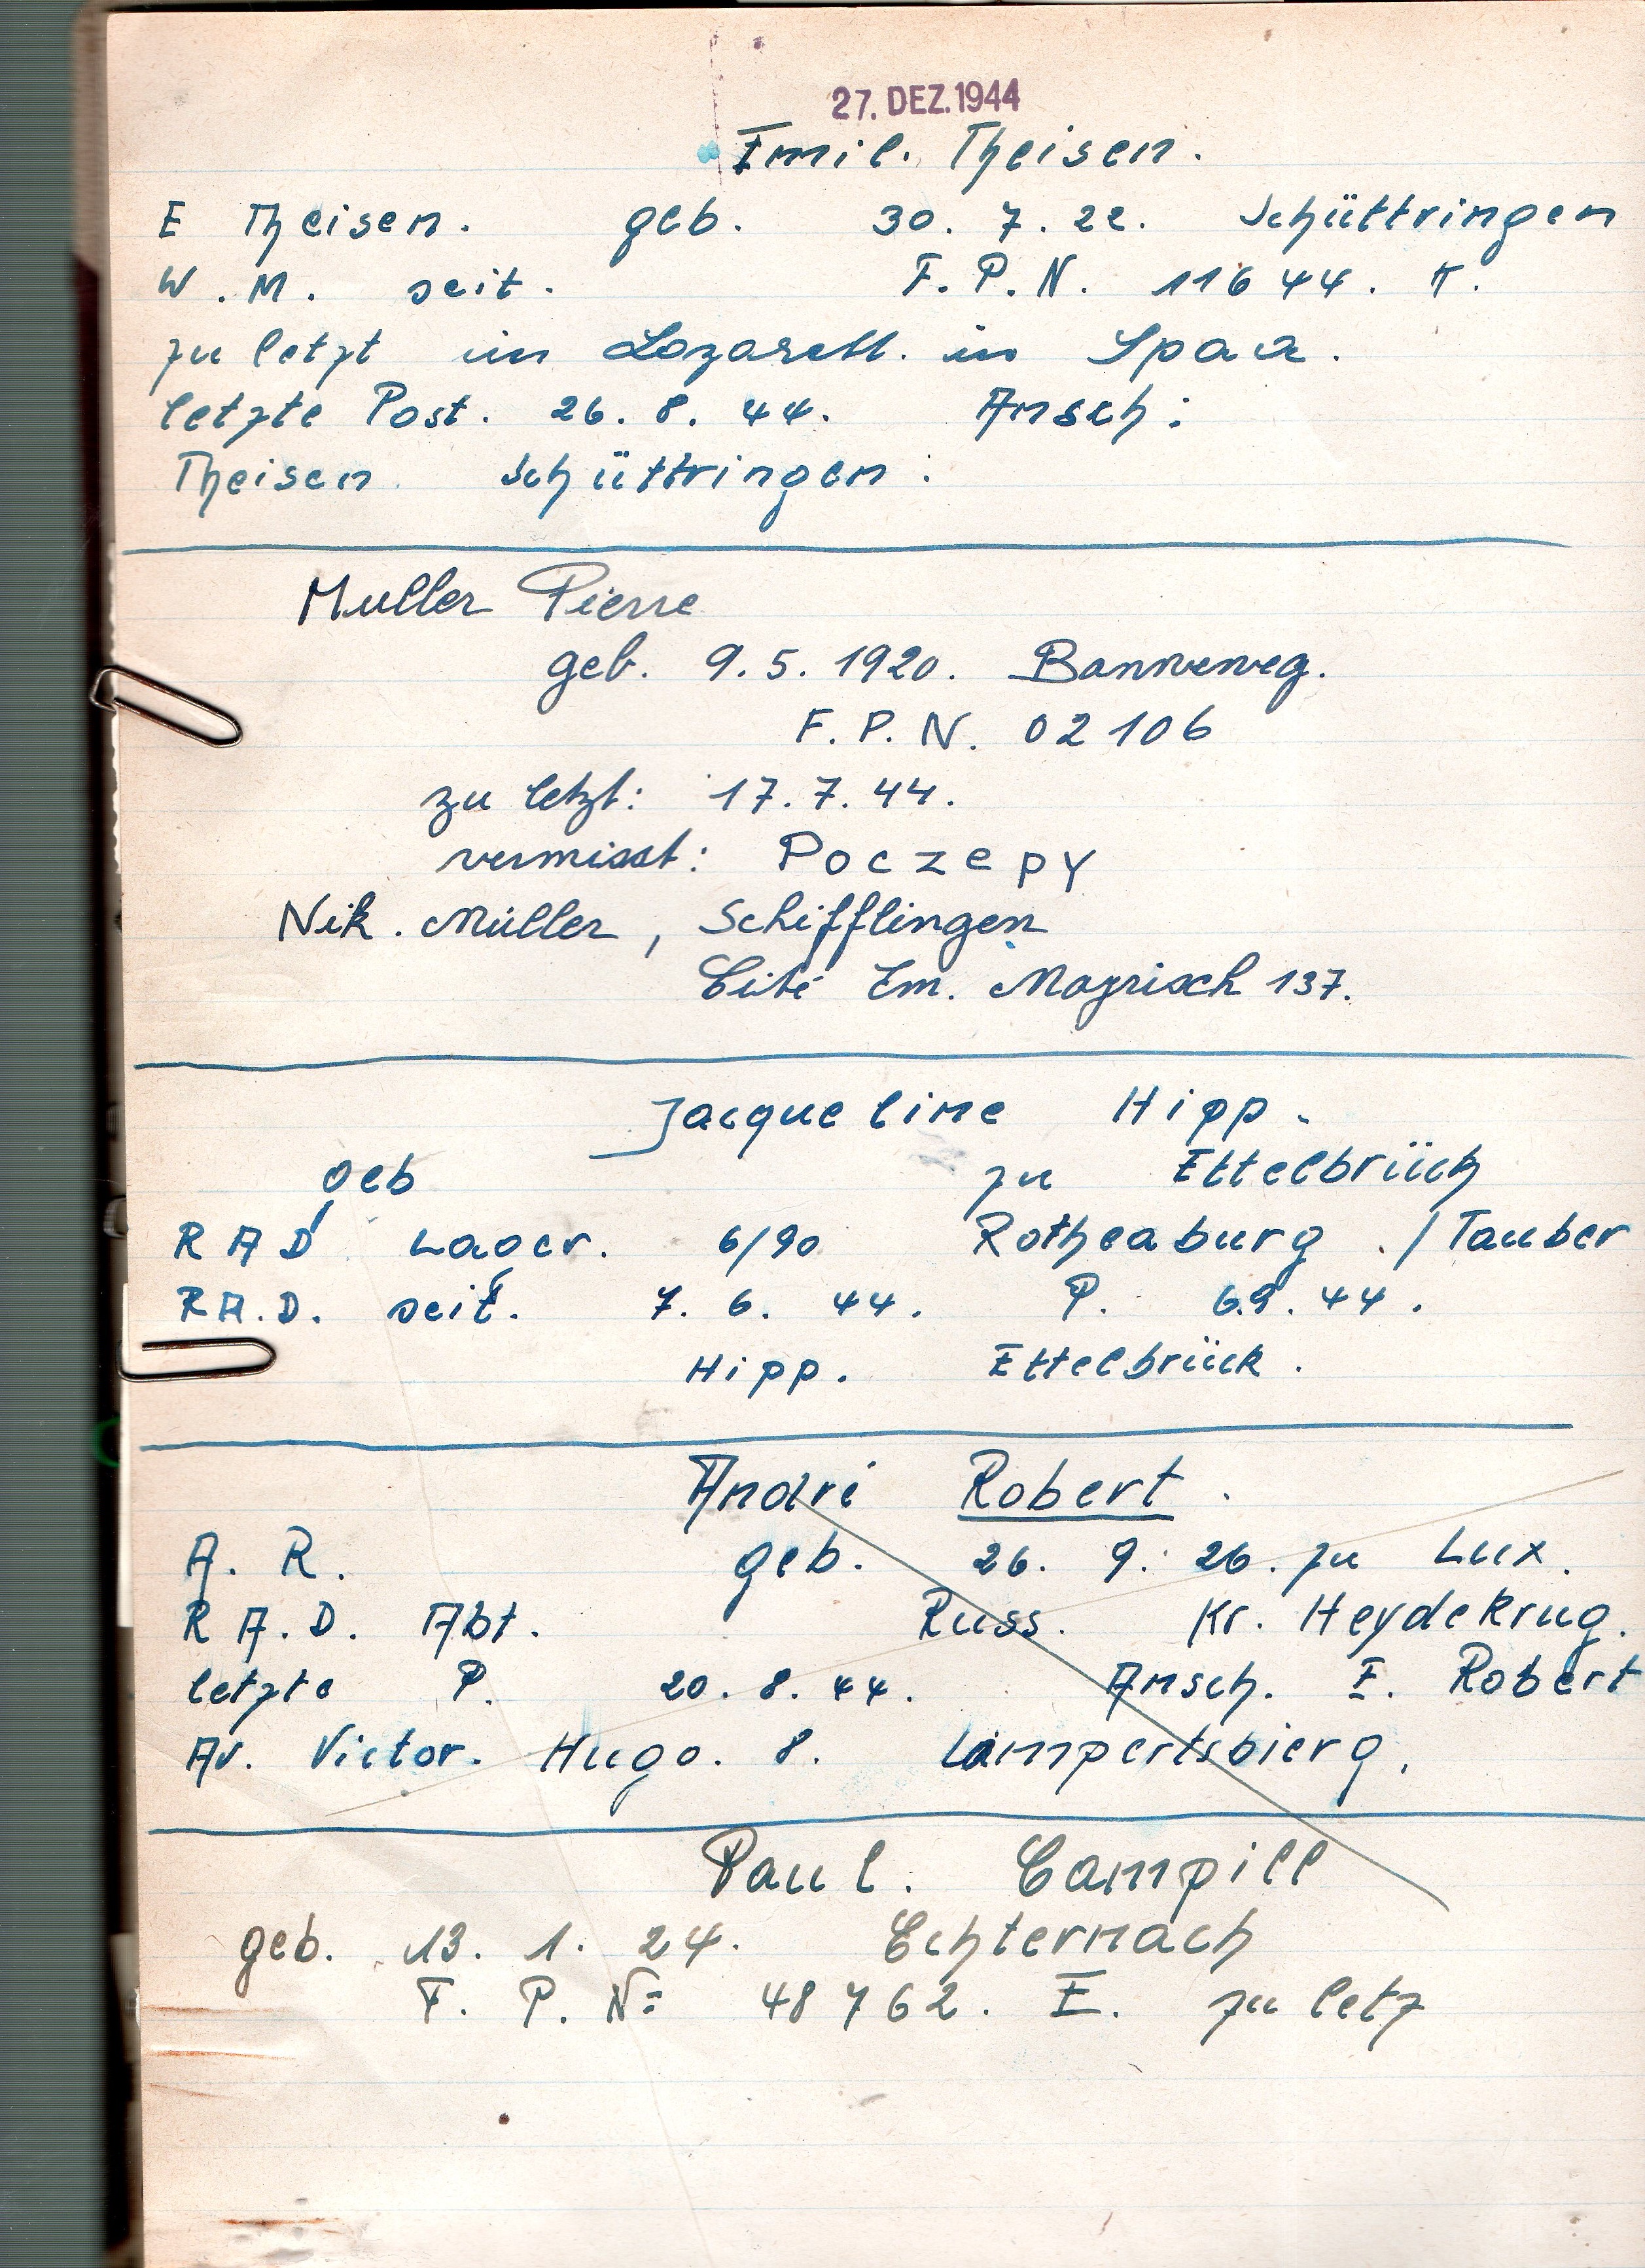 27. DEZ. 1944
Emil. Theisen.
E Theisen. geb. 30. 7. 22. Schüttringen
W. M. seit. F. P. N. 11644. K.
zu letzt im Lazarett. in Spaa.
letzte Post. 26. 8. 44. Ansch:
Theisen. Schüttringen:
Muller Pierre
geb. 9. 5. 1920. Bonneweg.
F. P. N. 02106
zu letzt: 17. 7. 44.
vermisst: Poczepy
Nik. Müller, Schifflingen
Cité Em. Mayrisch 137.
Jacqueline Hipp.
geb zu Ettelbrück
RAD Lager. 6/90 Rothenburg ./Tauber
RA.D. seit. 7. 6. 44. P. 6.9. 44.
Hipp. Ettelbrück.
André Robert.
A. R. geb. 26. 9. 26. zu Lux.
R A. D. Abt. Russ. Kr. Heydekrug.
letzte P. 20. 8. 44. Ansch. E. Robert
Av. Victor. Hugo. 8. Limpertsbierg.
Paul. Campill
geb. 13. 1. 24. Echternach
F. P. N= 48762. E. zu letz